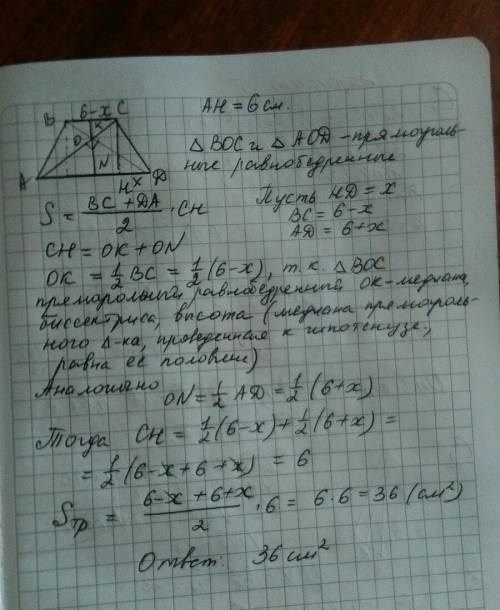 6-x
B C
K
O
N
A H x D
AH = 6 см.
△BOC и △AOD - прямоуголь-
ные равнобедренные
Пусть HD = x
BC = 6-x
AD = 6+x
S = (BC + DA)/2 · CH
CH = OK + ON
OK = 1/2 BC = 1/2 (6-x), т.к. △BOC
прямоугольный равнобедренный OK-медиана,
биссектриса, высота (медиана прямоуголь-
ного △-ка, проведенная к гипотенузе,
равна ее половине)
Аналогично
ON = 1/2 AD = 1/2 (6+x)
Тогда CH = 1/2 (6-x) + 1/2 (6+x) =
= 1/2 (6-x+6+x) = 6
Sтр = (6-x+6+x)/2 · 6 = 6·6 = 36 (см²)
Ответ: 36 см²